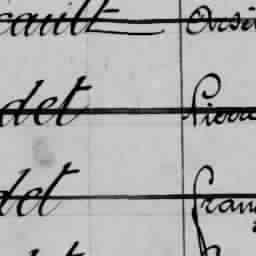 cault Orsi
det Pierre
det Fran